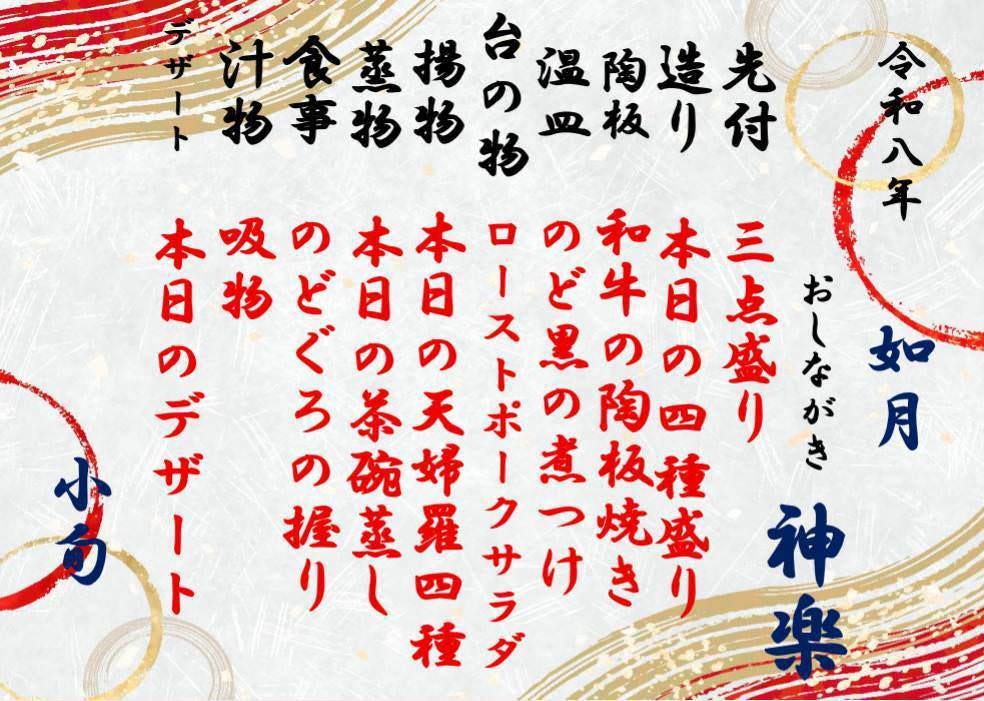 令和八年
如月
おしながき
神楽
先付
三点盛り
造り
本日の四種盛り
陶板
和牛の陶板焼き
温皿
のど黒の煮つけ
台の物
ローストポークサラダ
揚物
本日の天婦羅四種
蒸物
本日の茶碗蒸し
食事
のどぐろの握り
汁物
吸物
デザート
本日のデザート
小旬